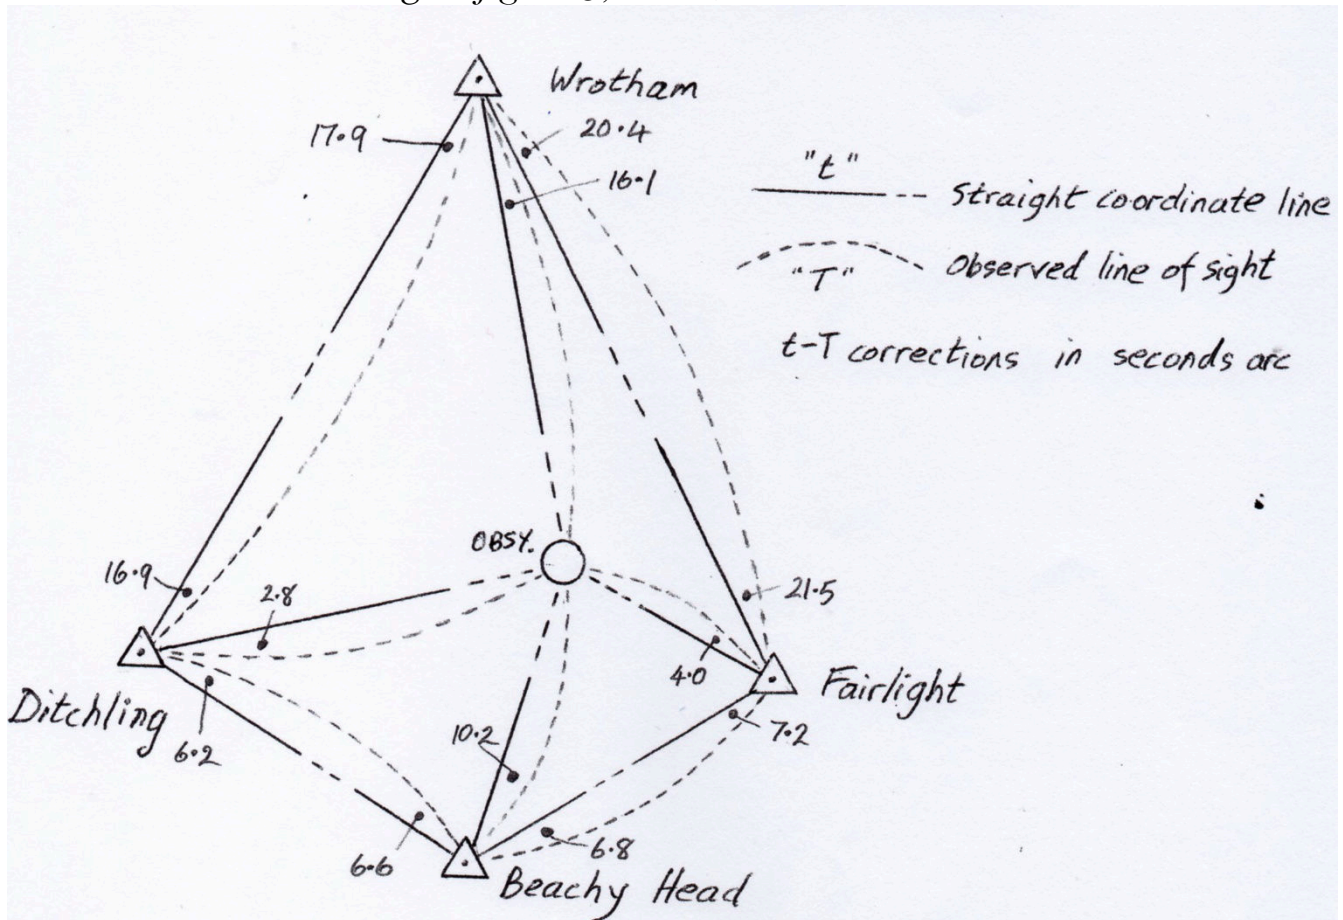 Wrotham
17.9
20.4
16.1
"t"
Straight coordinate line
"T"
Observed line of sight
t-T corrections in seconds arc
OBSY.
16.9
2.8
21.5
4.0
Fairlight
Ditchling
6.2
10.2
7.2
6.6
6.8
Beachy Head